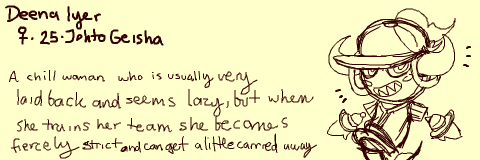 Deena Iyer
♀. 25. Johto Geisha
A chill woman who is usually very
laid back and seems lazy, but when
she trains her team she becomes
fiercely strict and can get a little carried away